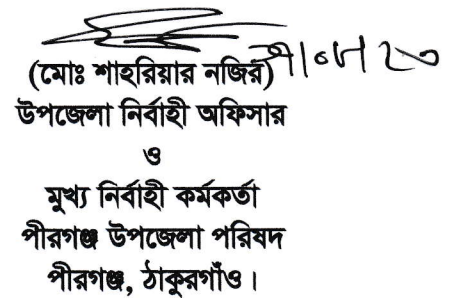 (মোঃ শাহরিয়ার নজির)
উপজেলা নির্বাহী অফিসার
ও
মুখ্য নির্বাহী কর্মকর্তা
পীরগঞ্জ উপজেলা পরিষদ
পীরগঞ্জ, ঠাকুরগাঁও।